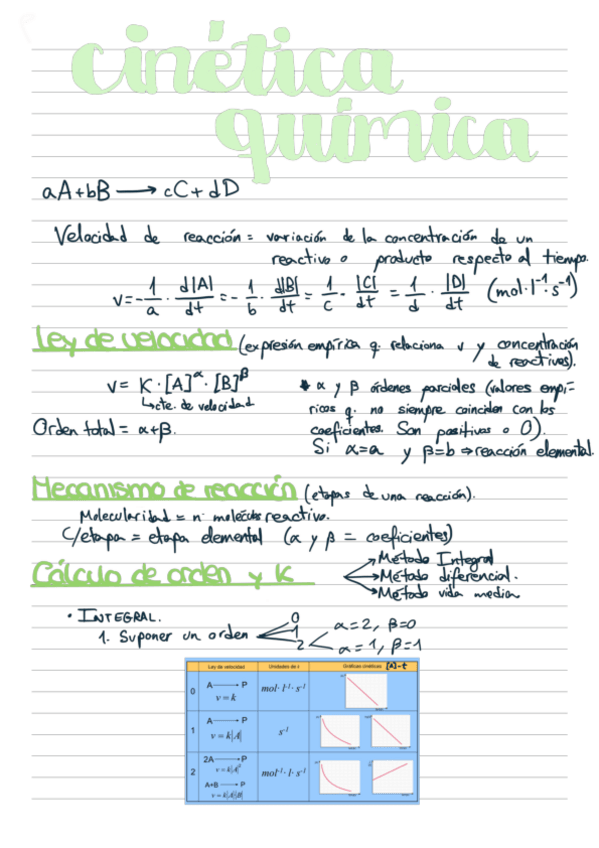 cinética
química
aA+bB → cC+dD
Velocidad de reacción = variación de la concentración de un
reactivo o producto respecto al tiempo.
v = -1/a · d|A|/dt = -1/b · d|B|/dt = 1/c · |C|/dt = 1/d · |D|/dt (mol·l⁻¹·s⁻¹)
Ley de velocidad (expresión empírica q. relaciona v y concentración
de reactivos).
v = K·[A]^α·[B]^β
↳cte. de velocidad
Orden total = α+β.
* α y β órdenes parciales (valores empí-
ricos q. no siempre coinciden con los
coeficientes. Son positivos o 0).
Si α=a y β=b ⇒ reacción elemental.
Mecanismo de reacción (etapas de una reacción).
Molecularidad = nº moléculas reactivo.
C/etapa = etapa elemental (α y β = coeficientes)
Cálculo de orden y K
→ Método Integral
→ Método diferencial.
→ Método vida media
· INTEGRAL.
1. Suponer un orden
0
1
2
α=2, β=0
α=1, β=1
Ley de velocidad Unidades de k Gráficas cinéticas [A]-t
0 A → P mol·l⁻¹·s⁻¹
v = k
1 A → P s⁻¹
v = k|A|
2 2A → P mol⁻¹·l·s⁻¹
v = k|A|²
A+B → P
v = k|A||B|